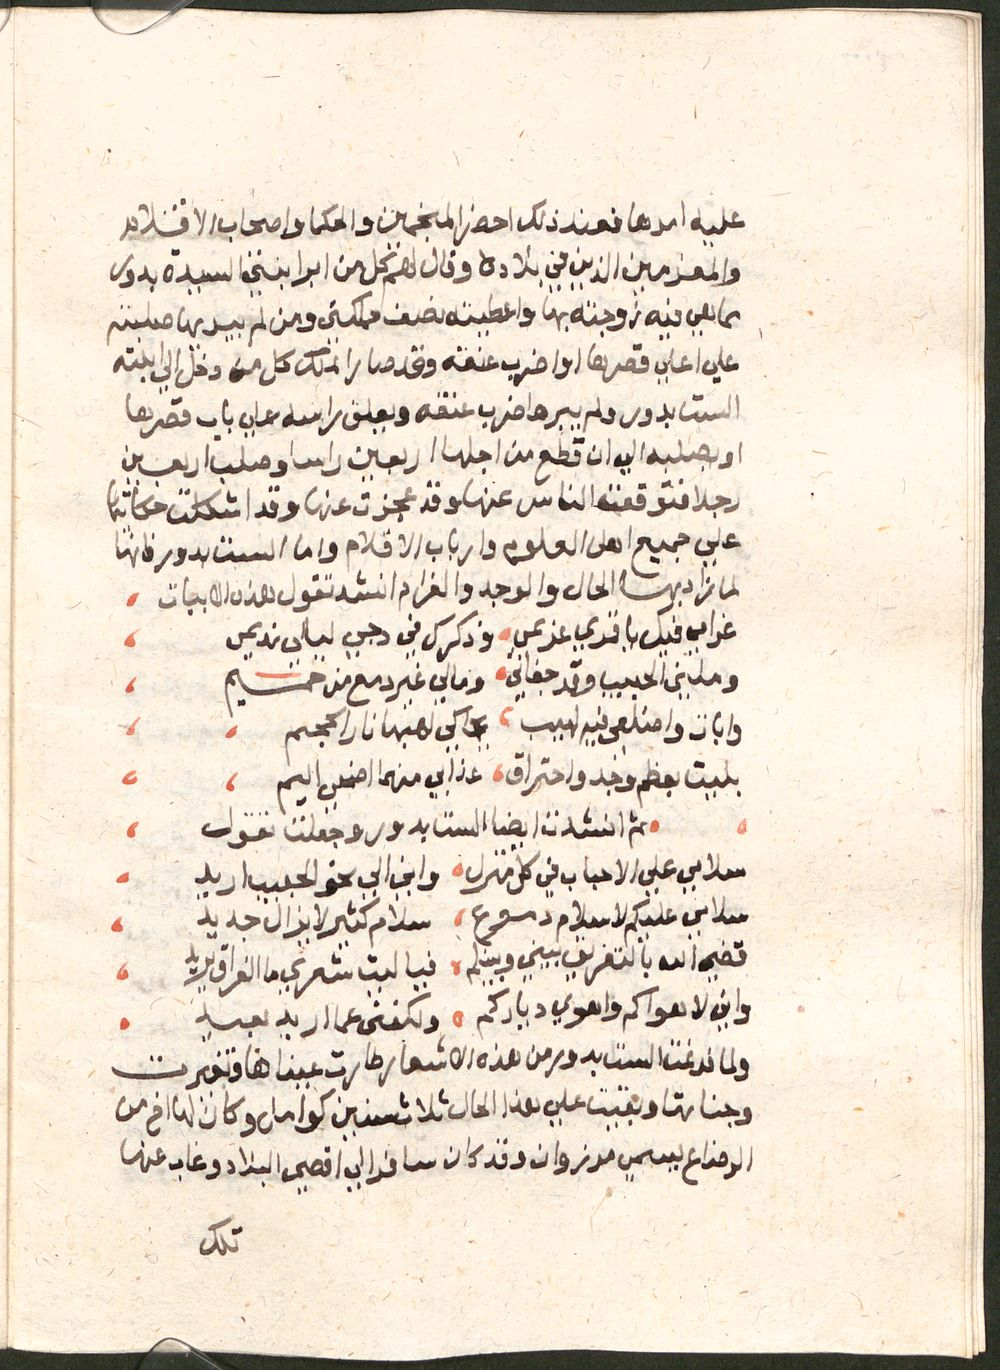 عليه امرها فعند ذلك احضر المنجمين والحكما واصحاب الاقلام
والمعزمين الذين في بلاده وقال لهم كل من ابرا ابنتي السيدة بدور
مما هي فيه زوجته بها واعطيته نصف مملكتي ومن لم يبريها صلبته
علي اعلي قصرها او اضرب عنقه وقد صار الملك كل من دخل الي ابنته
الست بدور ولم يبرها ضرب عنقه ويعلق راسه علي باب قصرها
او يصلبه الي ان قطع من اجلها اربعين راسا وصلب اربعين
رجلا فتوقفت الناس عنها وقد عجزت عنها وقد اشكلت حكايتها
علي جميع اهل العلوم وارباب الاقلام واما الست بدور فانها
لما زاد بها الحال والوجد والغرام انشد تقول هذه الابيات
غرامي فيك يا قمري غريمي وذكرك في دجي ليالي نديمي
وملني الحبيب وقد جفاني ومالي غير دمع من حميم
وابات واضلعي فيه لهيب يحاكي لهيبها نار الجحيم
بليت بعظم وجد واحتراق عذابي منهما اضحي اليم
ثم انشدت ايضا الست بدور وجعلت تقول
سلامي علي الاحباب في كل منزل واني الي نحو الحبيب اريد
سلامي عليكم لا سلام دموع سلام كثير لا يزال جديد
قضي الله بالتفريق بيني وبينكم فيا ليت شعري ما الفراق يريد
واني لاهواكم واهوي دياركم ولكنني عما اريد بعيد
ولما فرغت الست بدور من هذه الاشعار طارت عيناها وتغيرت
وجناتها وبقيت علي هذا الحال ثلاث سنين كوامل وكان لها اخ من
الرضاع يسمي مرزوان وقد كان سافر الي اقصي البلاد وغاب عنها
تلك